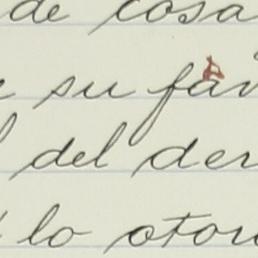 de cosa
su fav
del der
lo otor